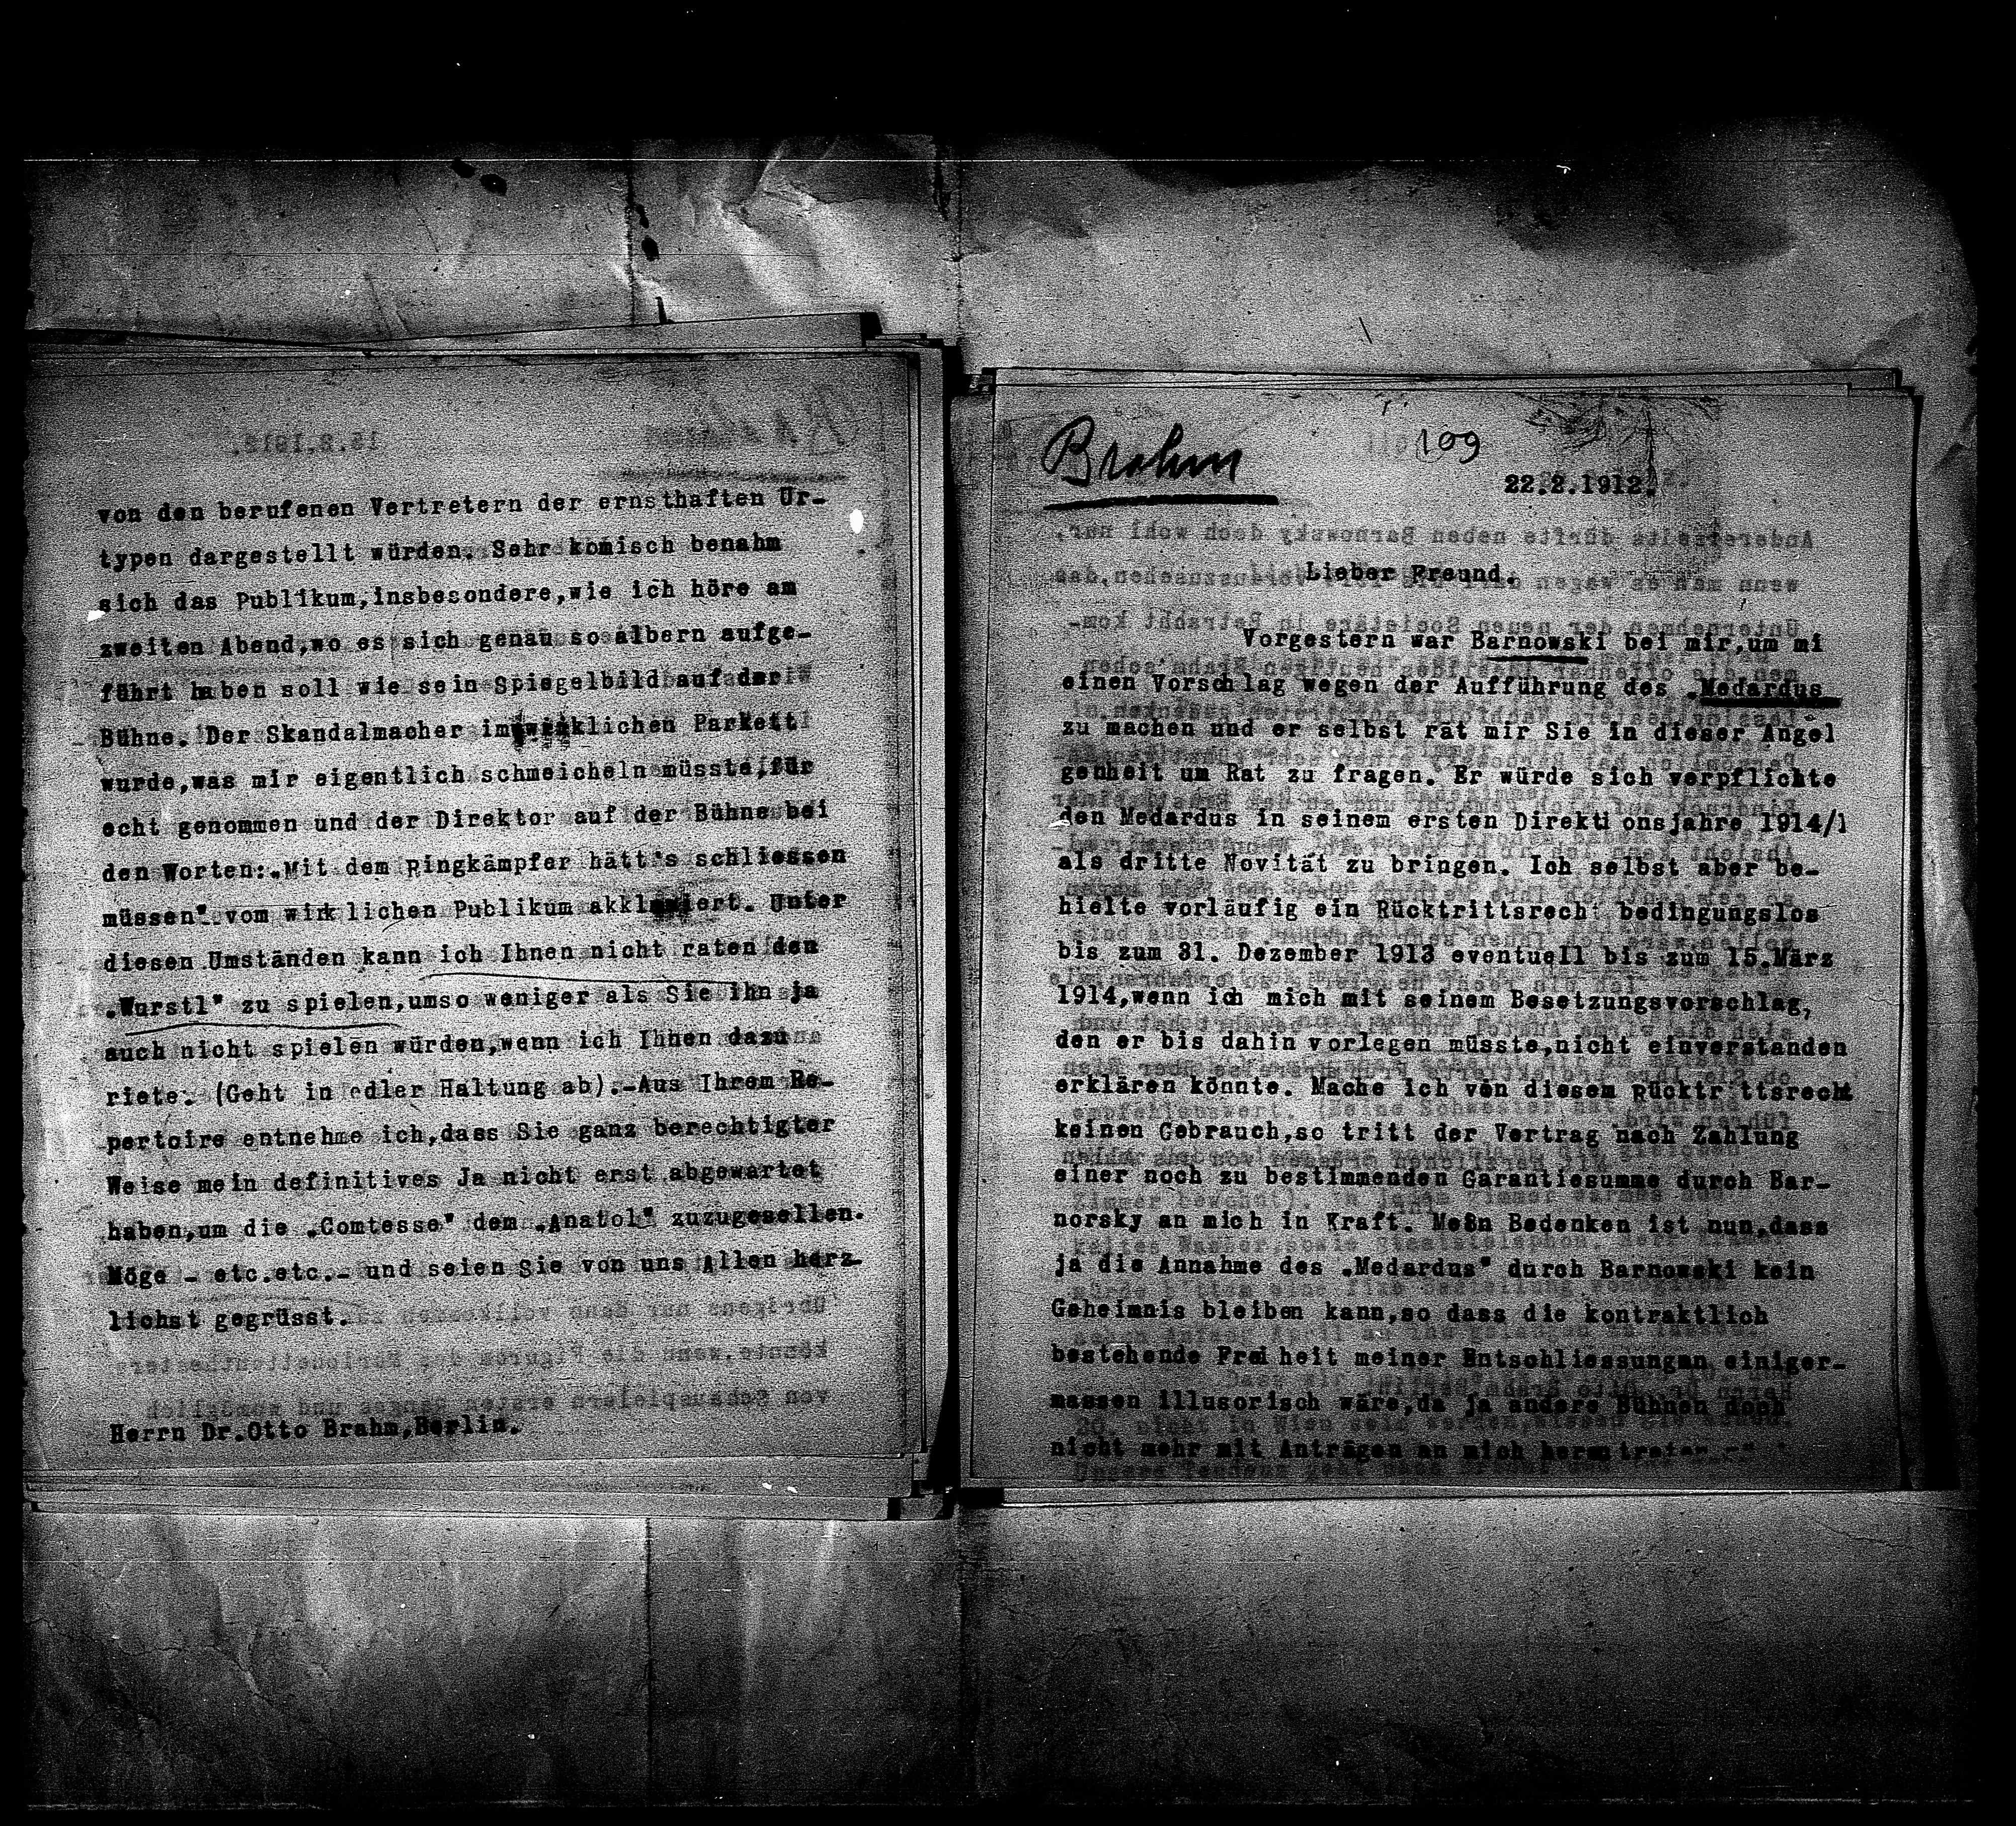 von den berufenen Vertretern der ernsthaften Ur-
typen dargestellt würden. Sehr komisch benahm
sich das Publikum,insbesondere,wie ich höre am
zweiten Abend,wo es sich genau so albern aufge-
führt haben soll wie sein Spiegelbild auf der
Bühne. Der Skandalmacher im wirklichen Parkett
wurde,was mir eigentlich schmeicheln müsste,für
echt genommen und der Direktor auf der Bühne bei
den Worten: „Mit dem Ringkämpfer hätt's schliessen
müssen" vom wirklichen Publikum akklamiert. Unter
diesen Umständen kann ich Ihnen nicht raten den
„Wurstl" zu spielen,umso weniger als Sie ihn ja
auch nicht spielen würden,wenn ich Ihnen dazu
riete. (Geht in edler Haltung ab).-Aus Ihrem Re-
pertoire entnehme ich,dass Sie ganz berechtigter
Weise mein definitives Ja nicht erst abgewartet
haben,um die „Comtesse" dem „Anatol" zuzugesellen.
Möge - etc.etc.- und seien Sie von uns Allen herz-
lichst gegrüsst.
Herrn Dr.Otto Brahm,Berlin.
Brahm
109
22.2.1912.
Lieber Freund.
Vorgestern war Barnowski bei mir,um mi
einen Vorschlag wegen der Aufführung des „Medardus
zu machen und er selbst rät mir Sie in dieser Angel
genheit um Rat zu fragen. Er würde sich verpflichte
den Medardus in seinem ersten Direktionsjahre 1914/1
als dritte Novität zu bringen. Ich selbst aber be-
hielte vorläufig ein Rücktrittsrecht bedingungslos
bis zum 31. Dezember 1913 eventuell bis zum 15.März
1914,wenn ich mich mit seinem Besetzungsvorschlag,
den er bis dahin vorlegen müsste,nicht einverstanden
erklären könnte. Mache ich von diesem Rücktr ttsrecht
keinen Gebrauch,so tritt der Vertrag nach Zahlung
einer noch zu bestimmenden Garantiesumme durch Bar-
norsky an mich in Kraft. Mein Bedenken ist nun,dass
ja die Annahme des „Medardus" durch Barnowski kein
Geheimnis bleiben kann,so dass die kontraktlich
bestehende Freiheit meiner Entschliessungen einiger-
massen illusorisch wäre,da ja andere Bühnen doch
nicht mehr mit Anträgen an mich